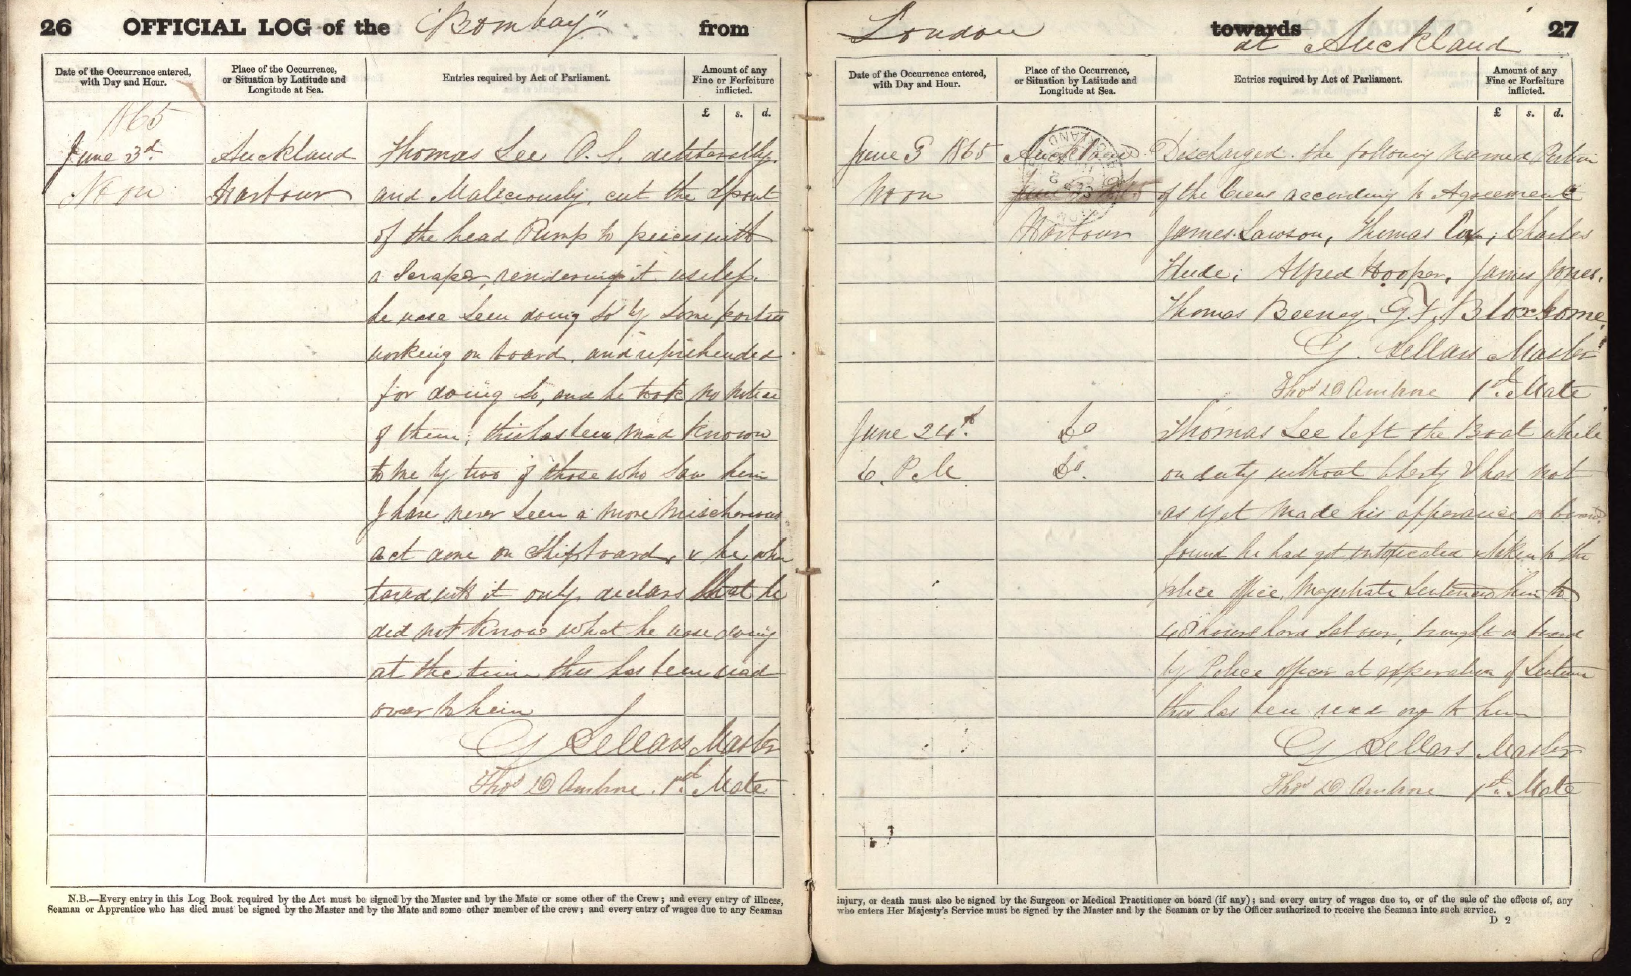 26 OFFICIAL LOG of the "Bombay" from
Date of the Occurrence entered, with Day and Hour.
Place of the Occurrence, or Situation by Latitude and Longitude at Sea.
Entries required by Act of Parliament.
Amount of any Fine or Forfeiture inflicted.
£ s. d.
1865
June 3d Auckland Thomas Lee O.S. deliberately
Noon Harbour and Maliciously, cut the Spout
of the head Pump to peices with
a Scraper, rendering it useless.
he wase seen doing so by some porters
working on board, and reprehended
for doing so, and he took no notice
of them; this has been mad known
to me by two of those who saw him
I have never seen a more Mischevious
act done on Shipboard, & he when
taxed with it only declars that he
did not know what he wase doing
at the time this has been read
over to him
G Sellars Master
Thos D Ambrne 1st Mate
N.B.—Every entry in this Log Book required by the Act must be signed by the Master and by the Mate or some other of the Crew; and every entry of illness,
Seaman or Apprentice who has died must be signed by the Master and by the Mate and some other member of the crew; and every entry of wages due to any Seaman
London towards 27
at Auckland
Date of the Occurrence entered, with Day and Hour.
Place of the Occurrence, or Situation by Latitude and Longitude at Sea.
Entries required by Act of Parliament.
Amount of any Fine or Forfeiture inflicted.
£ s. d.
June 9 1865 Auckland Discharged the following named Portion
Noon of the Crew according to Agreement
Harbour James Lawson, Thomas Cox; Charles
Hude; Alfred Hooper, James Jones,
Thomas Beeney, G. F. Bloxhome
G. Sellars Master
Thos D Ambrne 1st Mate
June 24th Do Thomas Lee left the Boat while
6. P.M. Do. on duty without liberty & has not
as yet made his apperance on board
found he had got intoxicated & taken to the
police office, Magistrate Sentenced him to
48 hours hard labour, brought on board
by Police officer at experation of Sentence
this has been read over to him
G Sellars Master
Thos D Ambrne 1st Mate
injury, or death must also be signed by the Surgeon or Medical Practitioner on board (if any); and every entry of wages due to, or of the sale of the effects of, any
who enters Her Majesty's Service must be signed by the Master and by the Seaman or by the Officer authorized to receive the Seaman into such service.
D 2